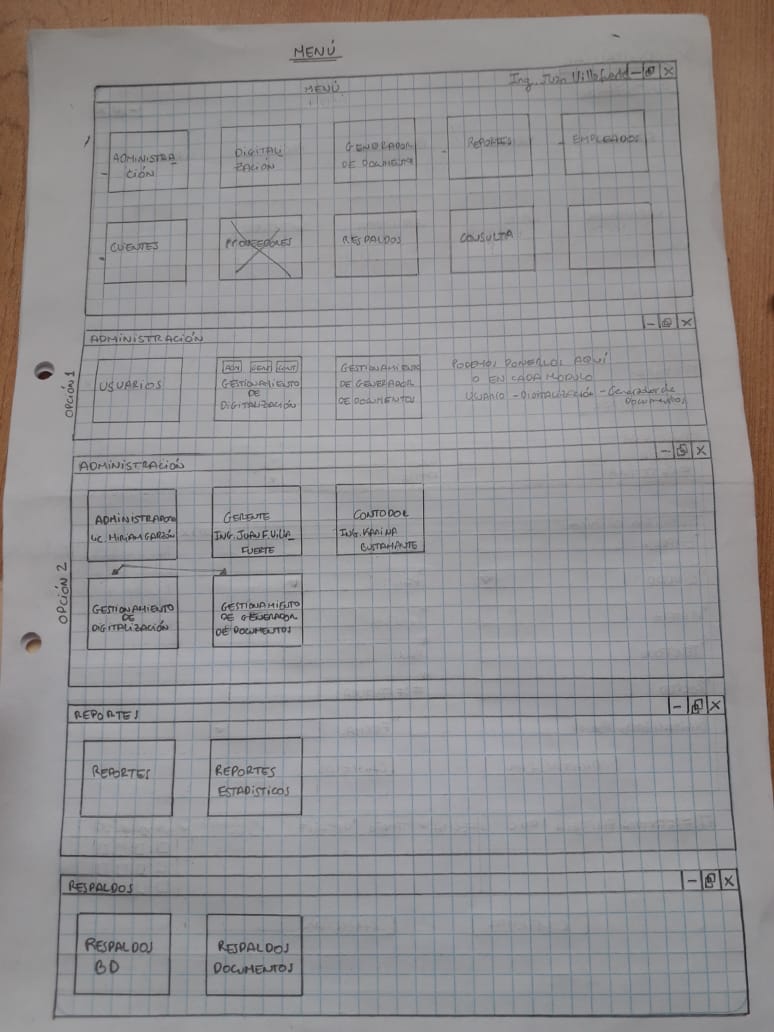 MENÚ
MENÚ
Ing. Juan
ADMINISTRA
CIÓN
DIGITALI
ZACIÓN
GENERADOR
DE DOCUMENTOS
REPORTES
EMPLEADOS
CLIENTES
PROVEEDORES
RESPALDOS
CONSULTA
OPCIÓN 1
ADMINISTRACIÓN
USUARIOS
ADM GERT CONT
GESTIONAMIENTO
DE
DIGITALIZACIÓN
GESTIONAMIENTO
DE GENERADOR
DE DOCUMENTOS
PODEMOS PONERLOS AQUÍ
O EN CADA MÓDULO
USUARIO - DIGITALIZACIÓN - Generador de
Documentos
OPCIÓN 2
ADMINISTRACIÓN
ADMINISTRADOR
LIC. MIRIAM GARZÓN
GERENTE
ING. JUAN F. VILLA
FUERTE
CONTODOR
ING. KARINA
BUSTAMANTE
GESTIONAMIENTO
DE
DIGITALIZACIÓN
GESTIONAMIENTO
DE GENERADOR
DE DOCUMENTOS
REPORTES
REPORTES
REPORTES
ESTADÍSTICOS
RESPALDOS
RESPALDOS
BD
RESPALDOS
DOCUMENTOS